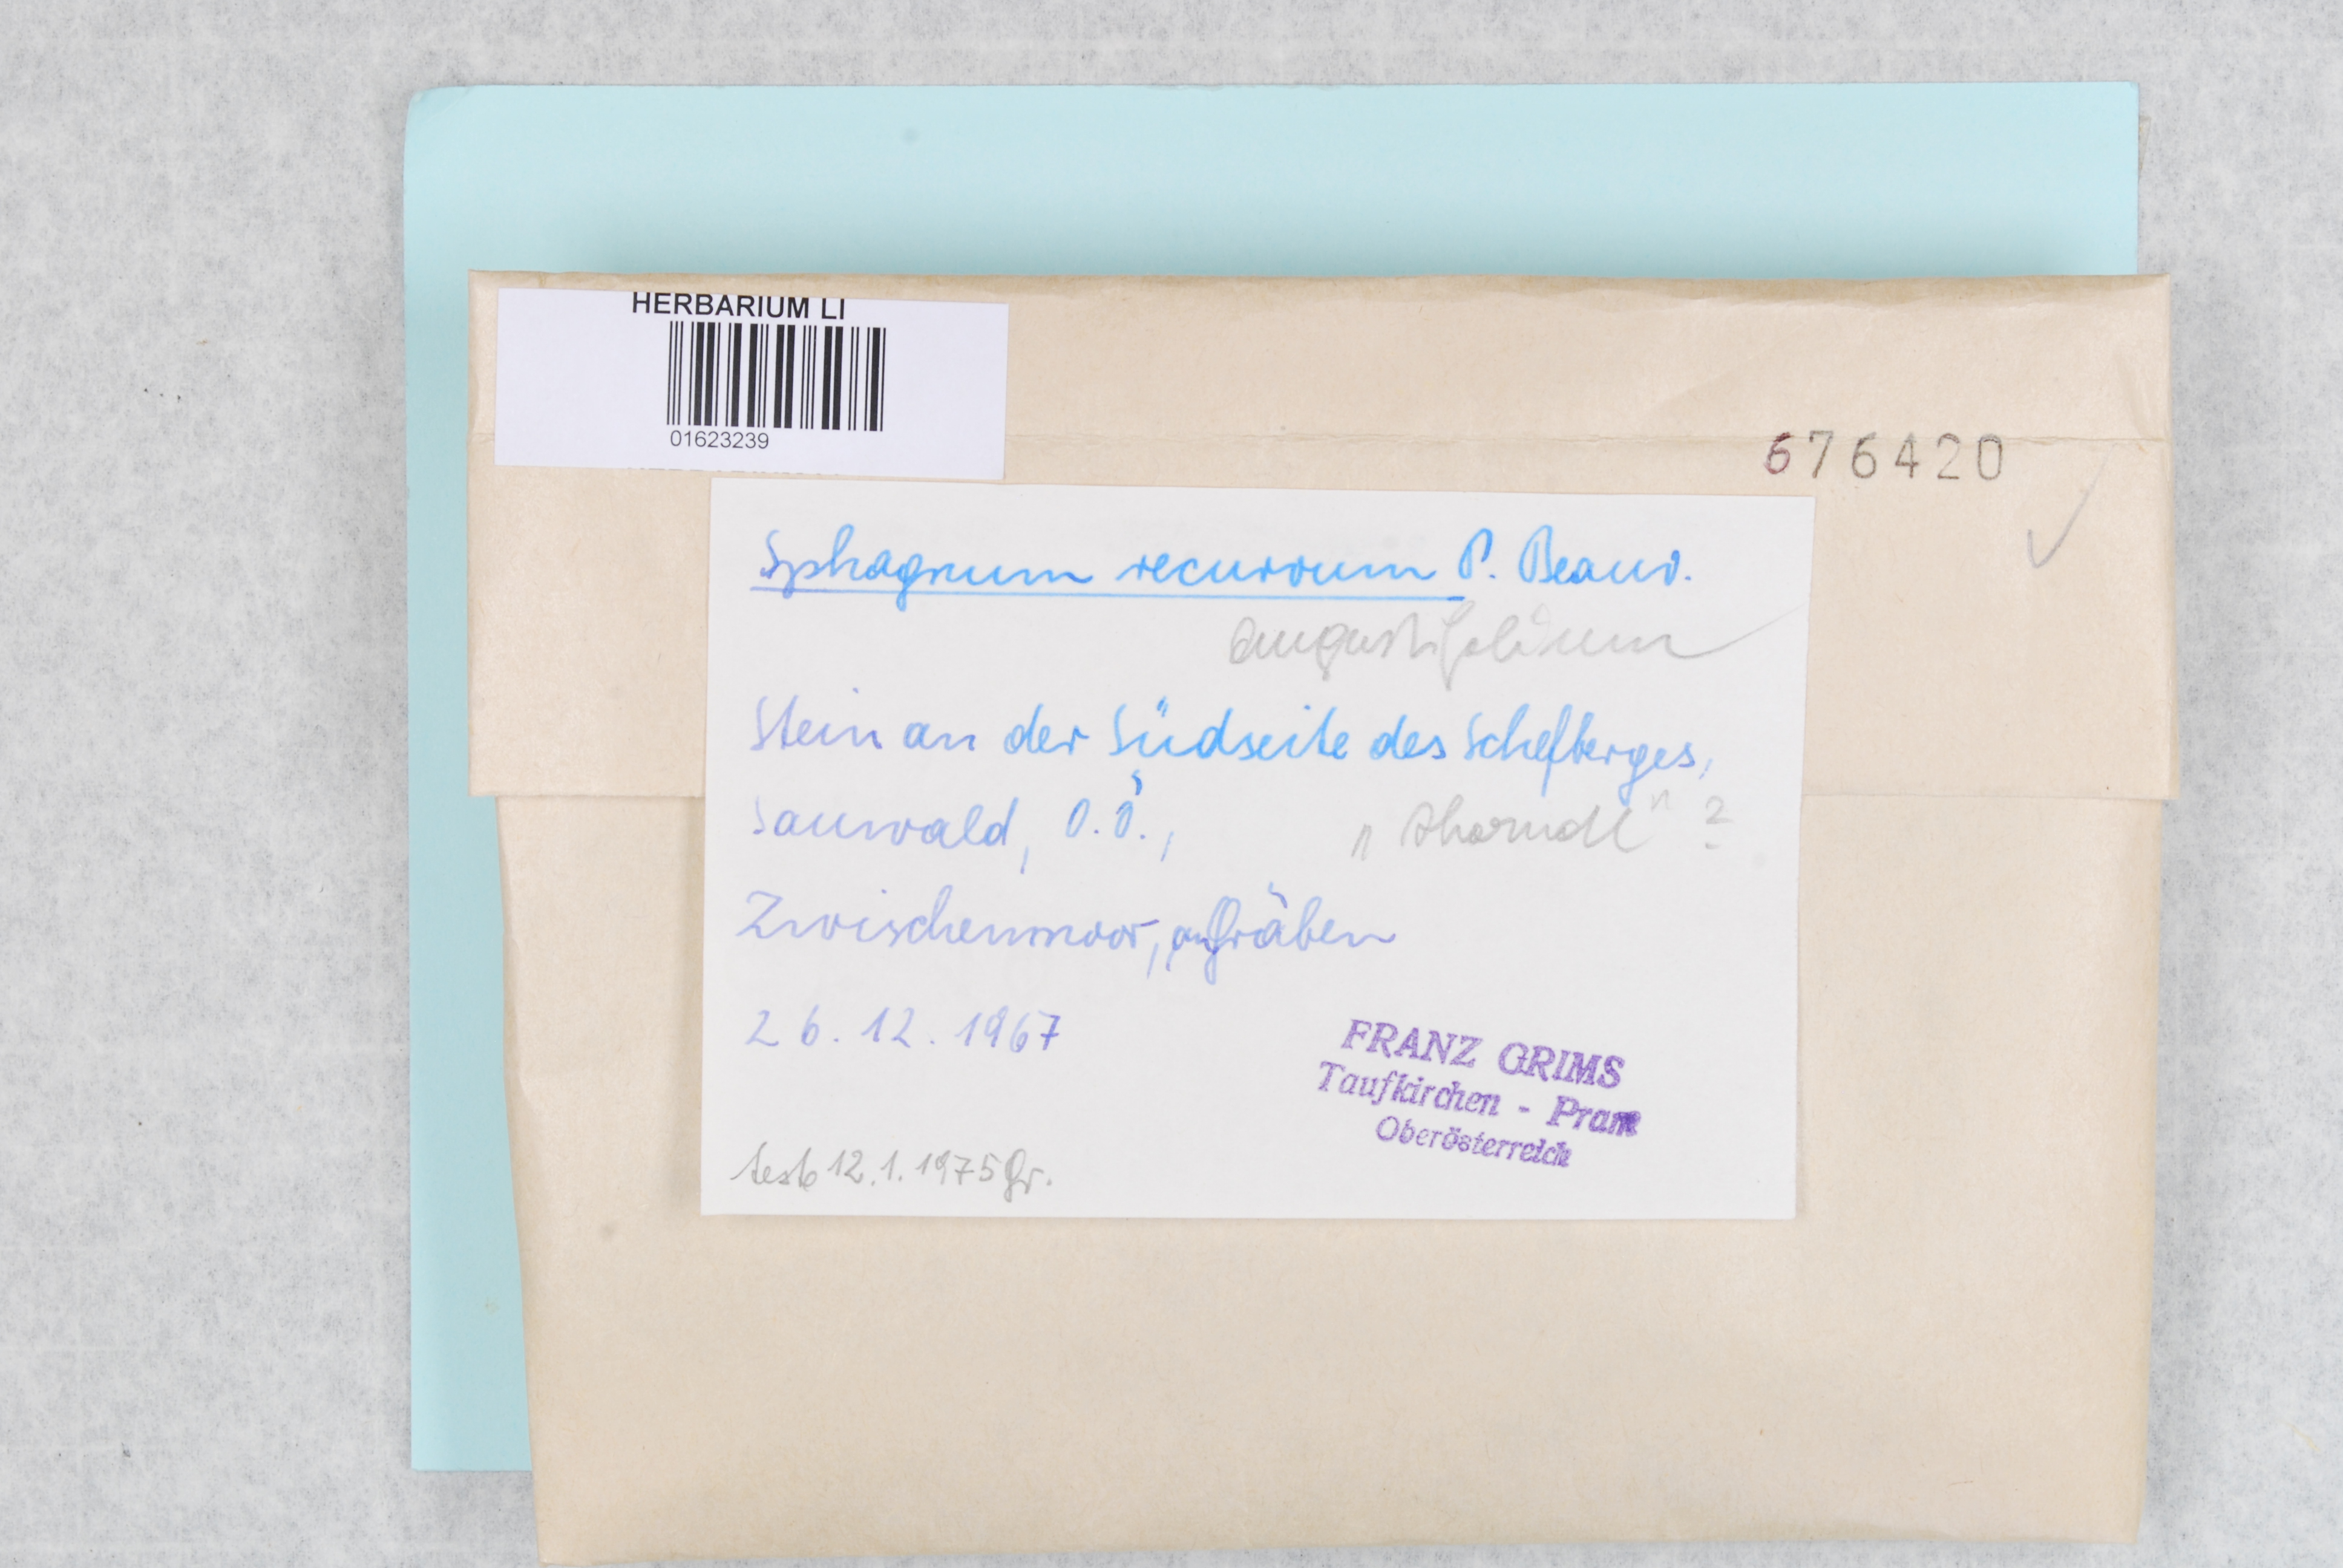 HERBARIUM LI
01623239
676420
Sphagnum recurvum P. Beauv.
angustifolium
Stein an der Südseite des Schefberges,
Sauwald, O.Ö.,
Zwischenmoor, an Gräben
26.12.1967
FRANZ GRIMS
Taufkirchen - Pram
Oberösterreich
test 12.1.1975 Gr.